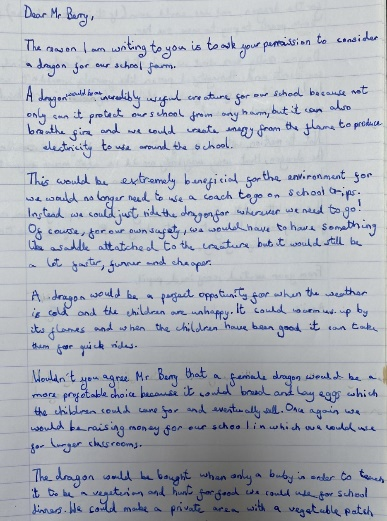 Dear Mr Berry,
The reason I am writing to you is to ask your permission to consider
a dragon for our school farm.
A dragon would be an incredibly useful creature for our school because not
only can it protect our school from any harm, but it can also
breathe fire and we could create energy from the flame to produce
electricity to use around the school.
This would be extremely beneficial for the environment for
we would no longer need to use a coach to go on school trips.
Instead we could just ride the dragon for wherever we need to go!
Of course, for our own safety, we would have to have something
like a saddle attatched to the creature but it would still be
a lot faster, funner and cheaper.
A dragon would be a perfect oppotunity for when the weather
is cold and the children are unhappy. It could warm us up by
its flames and when the children have been good it can take
them for quick rides.
Wouldn't you agree Mr Berry that a female dragon would be a
more profotable choice because it could breed and lay eggs which
the children could care for and eventually sell. Once again we
would be raising money for our school in which we could use
for larger classrooms.
The dragon would be bought when only a baby in order to teach
it to be a vegeterian and hunt for food we could use for school
dinners. We could make a private area with a vegetable patch